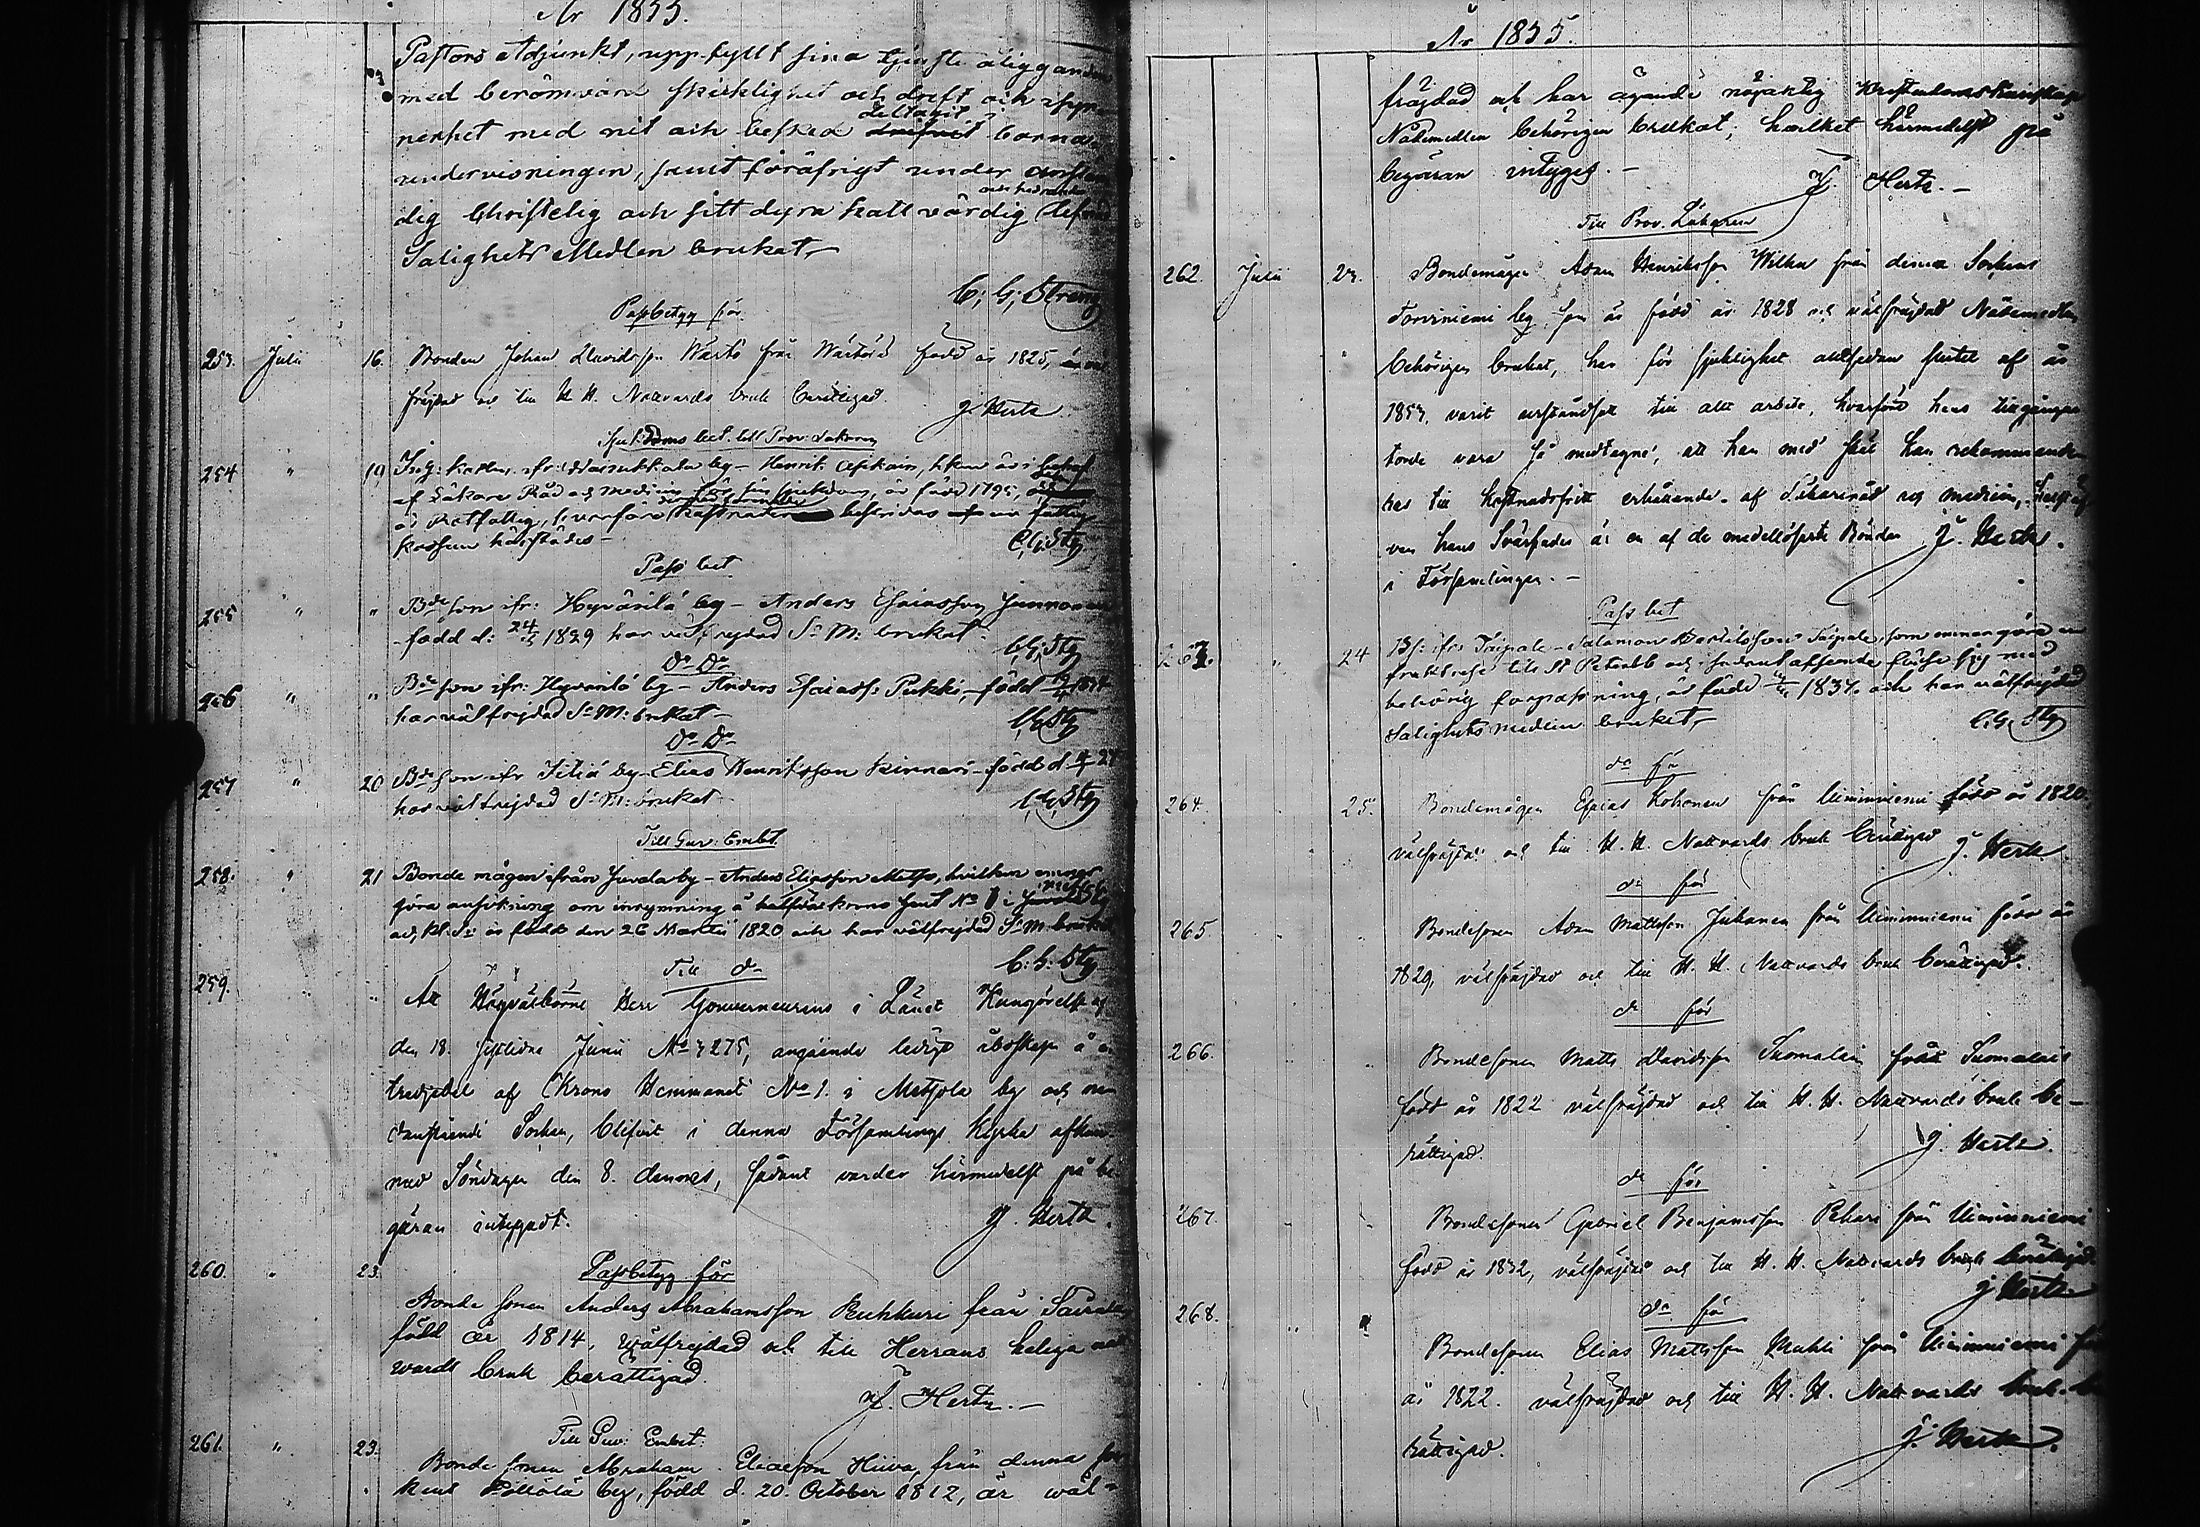 År 1855.
Pastors Adjunkt, uppfyllt sina tjenste åligganden
med berömvärd skicklighet och drift och
nerhet med nit och besked deltagit barna
undervisningen, samt föröfrigt under
dig Christelig och sitt dyra kall värdig
Salighets Medlen brukat
C: G: Streng
Passbetyg för
253. Julii 16. Bonden Johan Davidsson från född år 1825,
frejdad och till H. H. Nattvards bruk berättigad.
J. Hertz
Sjukdoms bet. till Prov: Läkaren
254 " 19 by – Henrik är i behof
af Läkare Råd och medicin för sin sjukdom, är född 1795,
är Utfattig, hvarföre kostnaden bestridas fattig
kassan härstädes –
C.G. Stg
Pass bet
255 " " Bde son ifr: Hyvärilä by – Anders Esaiasson
född d: 24/ 1829 har välfrejdad S: M: brukat –
C.G. Stg
Do Do
256 " " Bde son ifr: Hyvärilä by – Anders Esaiass: Pukki, – född
har välfrejdad S: M: brukat –
C.G. Stg
Do Do
257 " 20 Bde son ifr by – Elias Henriksson Kinnari – född d
har välfrejdad S: M: brukat –
C.G. Stg
Till Guv: Embt.
258. " 21 Bonde mågen ifrån Juvola by – Anders Eliasson hvilken ämnar
göra ansökning om inrymning å No 1 i
är född den 26 Martii 1820 och har välfrejdad S: M: brukat
C: G: Stg
Till do
259. " Att Högvälborne Herr Gouverneurens i Länet Kungörelse af
den 18. sistlidne Junii No 3275, angående ledigt åboskap å en
tredjedel af Krono Hemmanet No 1. i Metsola by och
Sochen, blifvit i denna Församlings Kyrka
Söndagen den 8. dennes, sådant varder härmedelst på be-
gäran intygadt.
J. Hertz.
260. " 23. Passbetyg för
Bonde sonen Anders Abrahamsson Puhkuri från
född år 1814, wälfrejdad och till Herrans heliga natt
wards bruk berättigad.
J. Hertz. –
Till Guv: Embet:
261. " 23. Bonde sonen Abraham Eliaeson Hiiva, från denna
kens by, född d. 20. October 1812, är wäl-
År 1855.
fräjdad och har ägande nöjaktig Kristendoms kunskap
Nådemedlen behörigen brukat; hvilket härmedelst på
begäran intygas. –
J. Hertz. –
Till Prov. Läkaren
262. Julii 23. Bondemågen Adam Henriksson Wilku från denna Sockens
Torvniemi by, som är född år 1828 och välfräjdad Nådemedlen
behörigen brukat, har för sjuklighet alltsedan slutet af år
1853, varit urståndsatt till allt arbete, hvarföre hans tillgångar
torde vara så medtagne, att han med skäl kan rekommenderas
till kostnadsfritt erhållande af Läkareråd och medicin,
ven hans Svärfader är en af de medellösaste Bönder
i Församlingen. –
J. Hertz.
Pass bet
263. " 24 Bs: ifr: Taipale – Salamon Taipale, som ämnar göra en
fraktresa till St Petersb och i sådant afseende förse sig med
behörig förpassning, är född 1837 och har välfrejdad
Salighets medlen brukat, –
C.G. Stg
do för
264. " 25. Bondemågen Esaias Kohonen från Uiminniemi född år 1820.
välfräjdad och till H. H. Nattvards bruk berättigad
J. Hertz
do för
265. " " Bondesonen Adam Mattsson Juhanen från Uiminniemi född år
1829, välfräjdad och till H. H. Nattvards bruk berättigad.
do för
266. " " Bondesonen Matts Davidsson Suomalain från Suomalais
född år 1822 välfräjdad och till H. H. Nattvards bruk be-
rättigad.
J. Hertz.
do för
267. " " Bondesonen Gabriel Benjamsson Pekari från Uiminniemi
född år 1832, välfräjdad och till H. H. Nattvards bruk berättigad
J. Hertz
do för
268. " " Bondesonen Elias Mattsson Muhli från Uiminniemi
år 1822. välfräjdad och till H. H. Nattvards bruk be
rättigad.
J. Hertz.